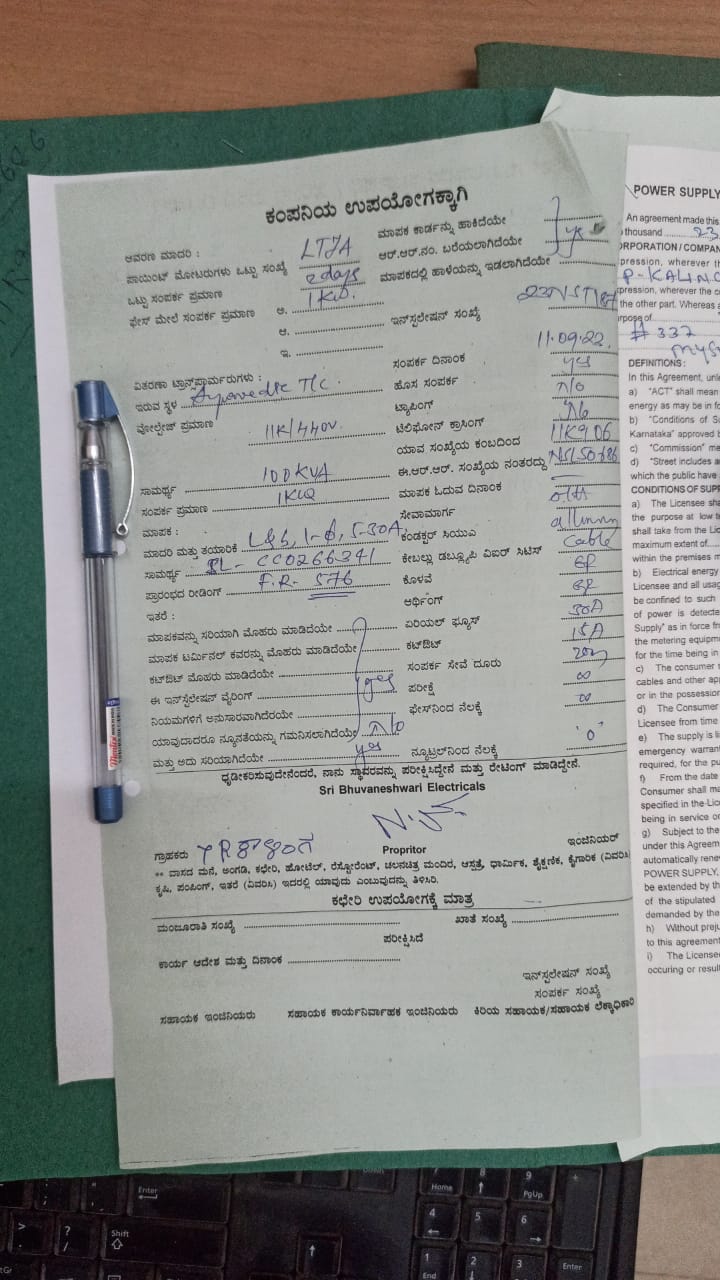 ಕಂಪನಿಯ ಉಪಯೋಗಕ್ಕಾಗಿ
ಆವರಣ ಮಾದರಿ : LT7A ಮಾಪಕ ಕಾರ್ಡನ್ನು ಹಾಕಿದೆಯೇ
ಪಾಯಿಂಟ್ ಮೋಟರುಗಳು ಒಟ್ಟು ಸಂಖ್ಯೆ 2 days ಆರ್.ಆರ್.ನಂ. ಬರೆಯಲಾಗಿದೆಯೇ yes
ಒಟ್ಟು ಸಂಪರ್ಕ ಪ್ರಮಾಣ 1KW ಮಾಪಕದಲ್ಲಿ ಹಾಳೆಯನ್ನು ಇಡಲಾಗಿದೆಯೇ
ಫೇಸ್ ಮೇಲೆ ಸಂಪರ್ಕ ಪ್ರಮಾಣ ಅ.
ಆ. ಇನ್‌ಸ್ಟಲೇಷನ್ ಸಂಖ್ಯೆ
ಇ.
ವಿತರಣಾ ಟ್ರಾನ್ಸ್‌ಫಾರ್ಮರುಗಳು : ಸಂಪರ್ಕ ದಿನಾಂಕ 11.09.22
ಇರುವ ಸ್ಥಳ Ayurvedic T/C. ಹೊಸ ಸಂಪರ್ಕ yes
ವೋಲ್ಟೇಜ್ ಪ್ರಮಾಣ 11K/440V. ಟ್ಯಾಪಿಂಗ್ No
ಟೆಲಿಫೋನ್ ಕ್ರಾಸಿಂಗ್ No
ಯಾವ ಸಂಖ್ಯೆಯ ಕಂಬದಿಂದ 11K906
ಸಾಮರ್ಥ್ಯ 100KVA ಈ.ಆರ್.ಆರ್. ಸಂಖ್ಯೆಯ ನಂತರದ್ದು
ಸಂಪರ್ಕ ಪ್ರಮಾಣ 1KW ಮಾಪಕ ಓದುವ ದಿನಾಂಕ
ಮಾಪಕ : ಸೇವಾಮಾರ್ಗ
ಮಾದರಿ ಮತ್ತು ತಯಾರಿಕೆ L&G, 1-ϕ, 5-30A, ಕಂಡಕ್ಟರ್ ಸಿಯುವಿ
ಸಾಮರ್ಥ್ಯ SL- CC0266341 ಕೇಬಲ್ಲು ಡಬ್ಲ್ಯೂಪಿ ವಿಐರ್ ಸಿಟಿಸ್ Cable
ಪ್ರಾರಂಭದ ರೀಡಿಂಗ್ F.R- 576 ಕೊಳವೆ GP
ಇತರೆ : ಆರ್ಥಿಂಗ್ GP
ಮಾಪಕವನ್ನು ಸರಿಯಾಗಿ ಮೊಹರು ಮಾಡಿದೆಯೇ ಏರಿಯಲ್ ಫ್ಯೂಸ್ 30A
ಮಾಪಕ ಟರ್ಮಿನಲ್ ಕವರನ್ನು ಮೊಹರು ಮಾಡಿದೆಯೇ ಕಟ್‌ಔಟ್ 15A
ಕಟ್‌ಔಟ್ ಮೊಹರು ಮಾಡಿದೆಯೇ ಸಂಪರ್ಕ ಸೇವೆ ದೂರು 20m
ಈ ಇನ್‌ಸ್ಟಲೇಷನ್ ವೈರಿಂಗ್ yes ಪರೀಕ್ಷೆ ∞
ನಿಯಮಗಳಿಗೆ ಅನುಸಾರವಾಗಿದೆಯೇ ಫೇಸ್‌ನಿಂದ ನೆಲಕ್ಕೆ ∞
ಯಾವುದಾದರೂ ನ್ಯೂನತೆಯನ್ನು ಗಮನಿಸಲಾಗಿದೆಯೇ No
ಮತ್ತು ಅದು ಸರಿಯಾಗಿದೆಯೇ yes ನ್ಯೂಟ್ರಲ್‌ನಿಂದ ನೆಲಕ್ಕೆ '0'
ಧೃಡೀಕರಿಸುವುದೇನೆಂದರೆ, ನಾನು ಸ್ಥಾವರವನ್ನು ಪರೀಕ್ಷಿಸಿದ್ದೇನೆ ಮತ್ತು ರೇಟಿಂಗ್ ಮಾಡಿದ್ದೇನೆ.
Sri Bhuvaneshwari Electricals
ಗ್ರಾಹಕರು Propritor ಇಂಜಿನಿಯರ್
** ವಾಸದ ಮನೆ, ಅಂಗಡಿ, ಕಛೇರಿ, ಹೋಟೆಲ್, ರೆಸ್ಟೋರೆಂಟ್, ಚಲನಚಿತ್ರ ಮಂದಿರ, ಆಸ್ಪತ್ರೆ, ಧಾರ್ಮಿಕ, ಶೈಕ್ಷಣಿಕ, ಕೈಗಾರಿಕ (ವಿವರಿಸಿ
ಕೃಷಿ, ಪಂಪಿಂಗ್, ಇತರೆ (ವಿವರಿಸಿ) ಇದರಲ್ಲಿ ಯಾವುದು ಎಂಬುವುದನ್ನು ತಿಳಿಸಿರಿ.
ಕಛೇರಿ ಉಪಯೋಗಕ್ಕೆ ಮಾತ್ರ
ಮಂಜೂರಾತಿ ಸಂಖ್ಯೆ ಖಾತೆ ಸಂಖ್ಯೆ
ಪರೀಕ್ಷಿಸಿದೆ
ಕಾರ್ಯ ಆದೇಶ ಮತ್ತು ದಿನಾಂಕ
ಇನ್‌ಸ್ಟಲೇಷನ್ ಸಂಖ್ಯೆ
ಸಂಪರ್ಕ ಸಂಖ್ಯೆ
ಸಹಾಯಕ ಇಂಜಿನಿಯರು ಸಹಾಯಕ ಕಾರ್ಯನಿರ್ವಾಹಕ ಇಂಜಿನಿಯರು ಕಿರಿಯ ಸಹಾಯಕ/ಸಹಾಯಕ ಲೆಕ್ಕಾಧಿಕಾರಿ
POWER SUPPLY
An agreement made this
thousand 23
ORPORATION / COMPAN
pression, wherever th
P-KALING
xpression, wherever the co
the other part. Whereas
rpose of
# 337
DEFINITIONS:
In this Agreement, unle
a) "ACT" shall mean
energy as may be in fo
b) "Conditions of Su
Karnataka" approved b
c) "Commission" me
d) "Street includes a
which the public have
CONDITIONS OF SUPP
a) The Licensee sha
the purpose at low te
shall take from the Lic
maximum extent of
within the premises m
b) Electrical energy
Licensee and all usag
be confined to such
of power is detecte
Supply" as in force fr
the metering equipm
for the time being in
c) The consumer
cables and other app
or in the possession
d) The Consumer
Licensee from time
e) The supply is li
emergency warrant
required, for the pu
f) From the date
Consumer shall ma
specified in the Lic
being in service or
g) Subject to the
under this Agreem
automatically rene
POWER SUPPLY,
be extended by the
of the stipulated
demanded by the
h) Without preju
to this agreement
i) The Licensee
occuring or result
Enter
Shift
Home
PgUp
End
Enter